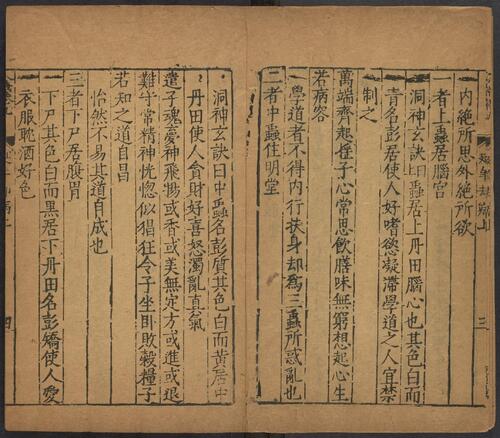 內絕所思外絕所欲
一者上蟲居腦宮
洞神玄訣曰上蟲居上丹田腦心也其色白而
青名彭居使人好嗜慾凝滯學道之人宜禁
制之
萬端齊起種子心常思飲膳味無窮想起心生
若病容
學道者不得內行扶身却爲三蟲所惑亂也
二者中蟲住明堂
三
洞神玄訣曰中蟲名彭質其色白而黃居中
丹田使人貪財好喜怒濁亂真氣
遣子魂憂神飛惕或香或美無定方或進或退
難守常精神恍惚似猖狂令子坐卧敗穀糧子
若知之道自昌
怡然不易其道自成也
三者下尸居腹胃
下尸其色白而黑居下丹田名彭矯使人愛
衣服耽酒好色
四